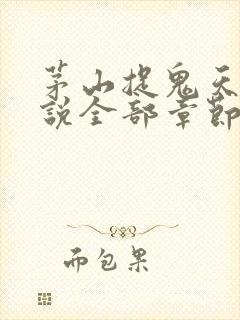 茅山捉鬼天
說全部章節
而包果